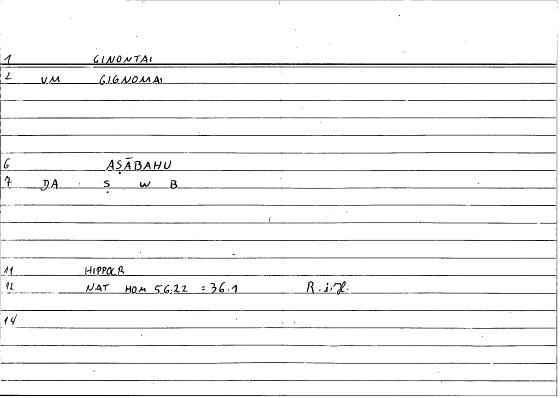 1 GINONTAI
2 VM GIGNOMAI
6 AṢĀBAHU
7 DA Ṣ W B
11 HIPPOCR
12 NAT HOM 56.22 = 36.1 R.i.H.
14